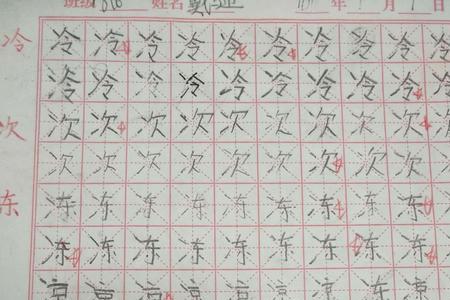 班级 姓名 年 月 日
冷 冷 冷 冷 冷 冷 冷 冷 冷 冷 冷
冷 冷 冷 冷 冷 冷 冷 冷 冷 冷
次 次 次 次 次 次 次 次 次 次 次
次 次 次 次 次 次 次 次 次 次
冻 冻 冻 冻 冻 冻 冻 冻 冻 冻
冻 冻 冻 冻 冻 冻 冻 冻 冻 冻